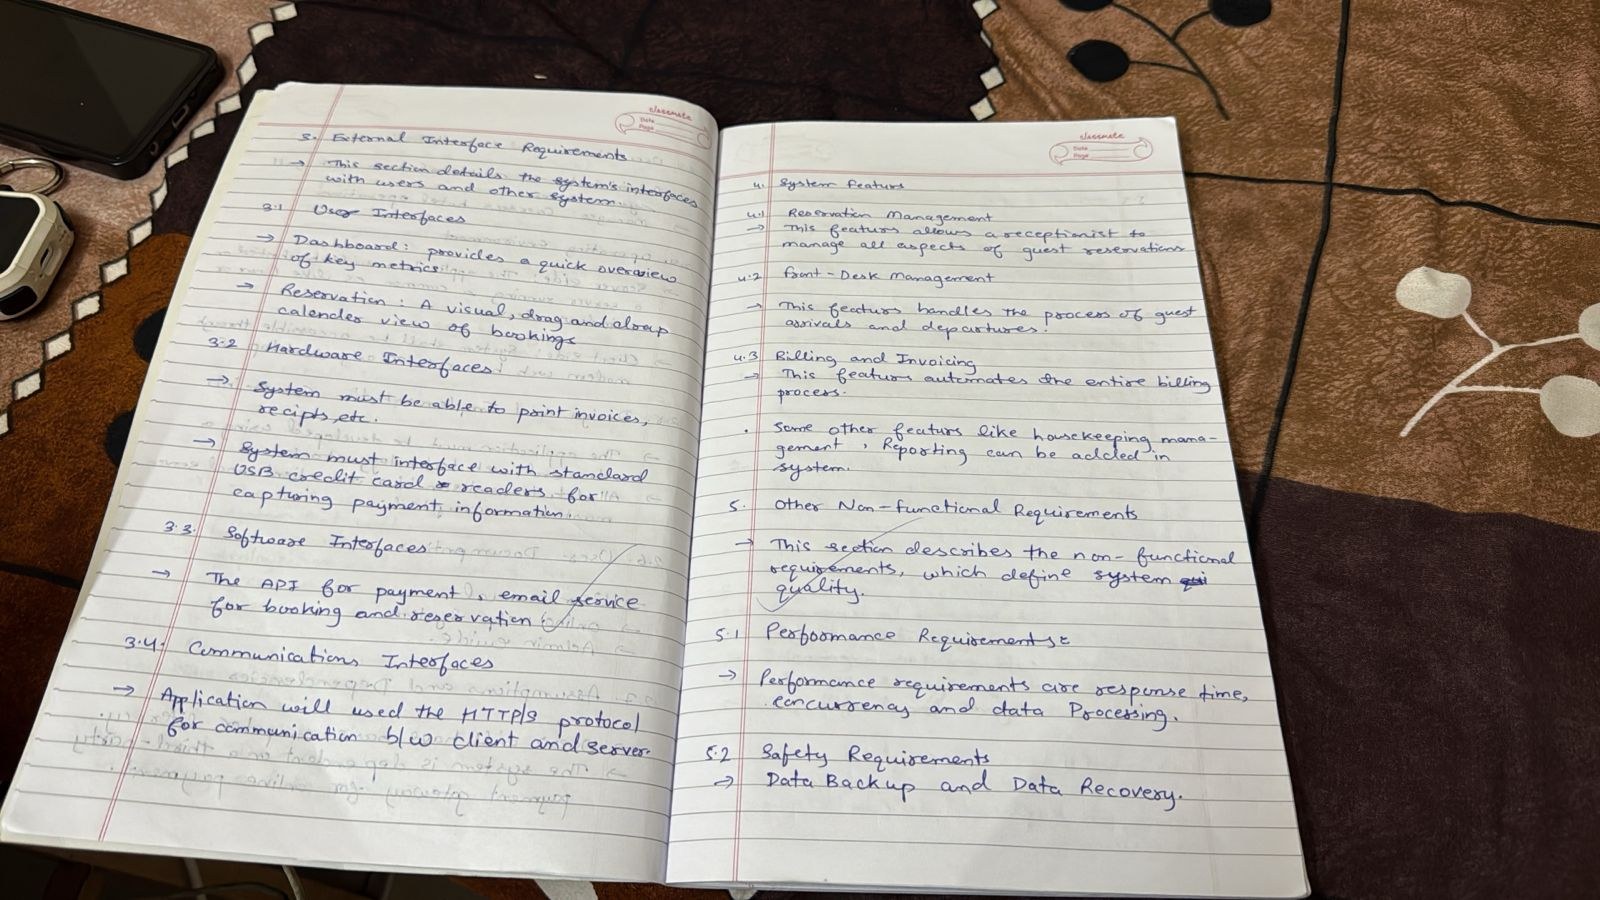 classmate
Date
Page
3. External Interface Requirements
→ This section details the system's interfaces
with users and other system.
3.1 User Interfaces
→ Dashboard: provides a quick overview
of key metrics
→ Reservation: A visual, drag and drop
calender view of bookings
3.2 Hardware Interfaces:
→ System must be able to print invoices,
recipts, etc.
→ System must interface with standard
USB credit card readers for
capturing payment information.
3.3. Software Interfaces
→ The API for payment, email service
for booking and reservation
3.4. Communications Interfaces
→ Application will used the HTTP/S protocol
for communication b/w client and server.
classmate
Date
Page
4. System featurs
4.1 Reservation Management
→ This featurs allows a receptionist to
manage all aspects of guest reservations
4.2 front-Desk Management
→ This featurs handles the process of guest
arrivals and departures.
4.3 Billing and Invoicing
→ This featurs automates the entire billing
process.
. Some other featurs like housekeeping mana-
gement, Reporting can be added in
system.
5. Other Non-functional Requirements
→ This section describes the non-functional
requirements, which define system
quality.
5.1 Performance Requirements:
→ Performance requirements are response time,
concurrency and data Processing.
5.2 Safety Requirements
→ Data Backup and Data Recovery.